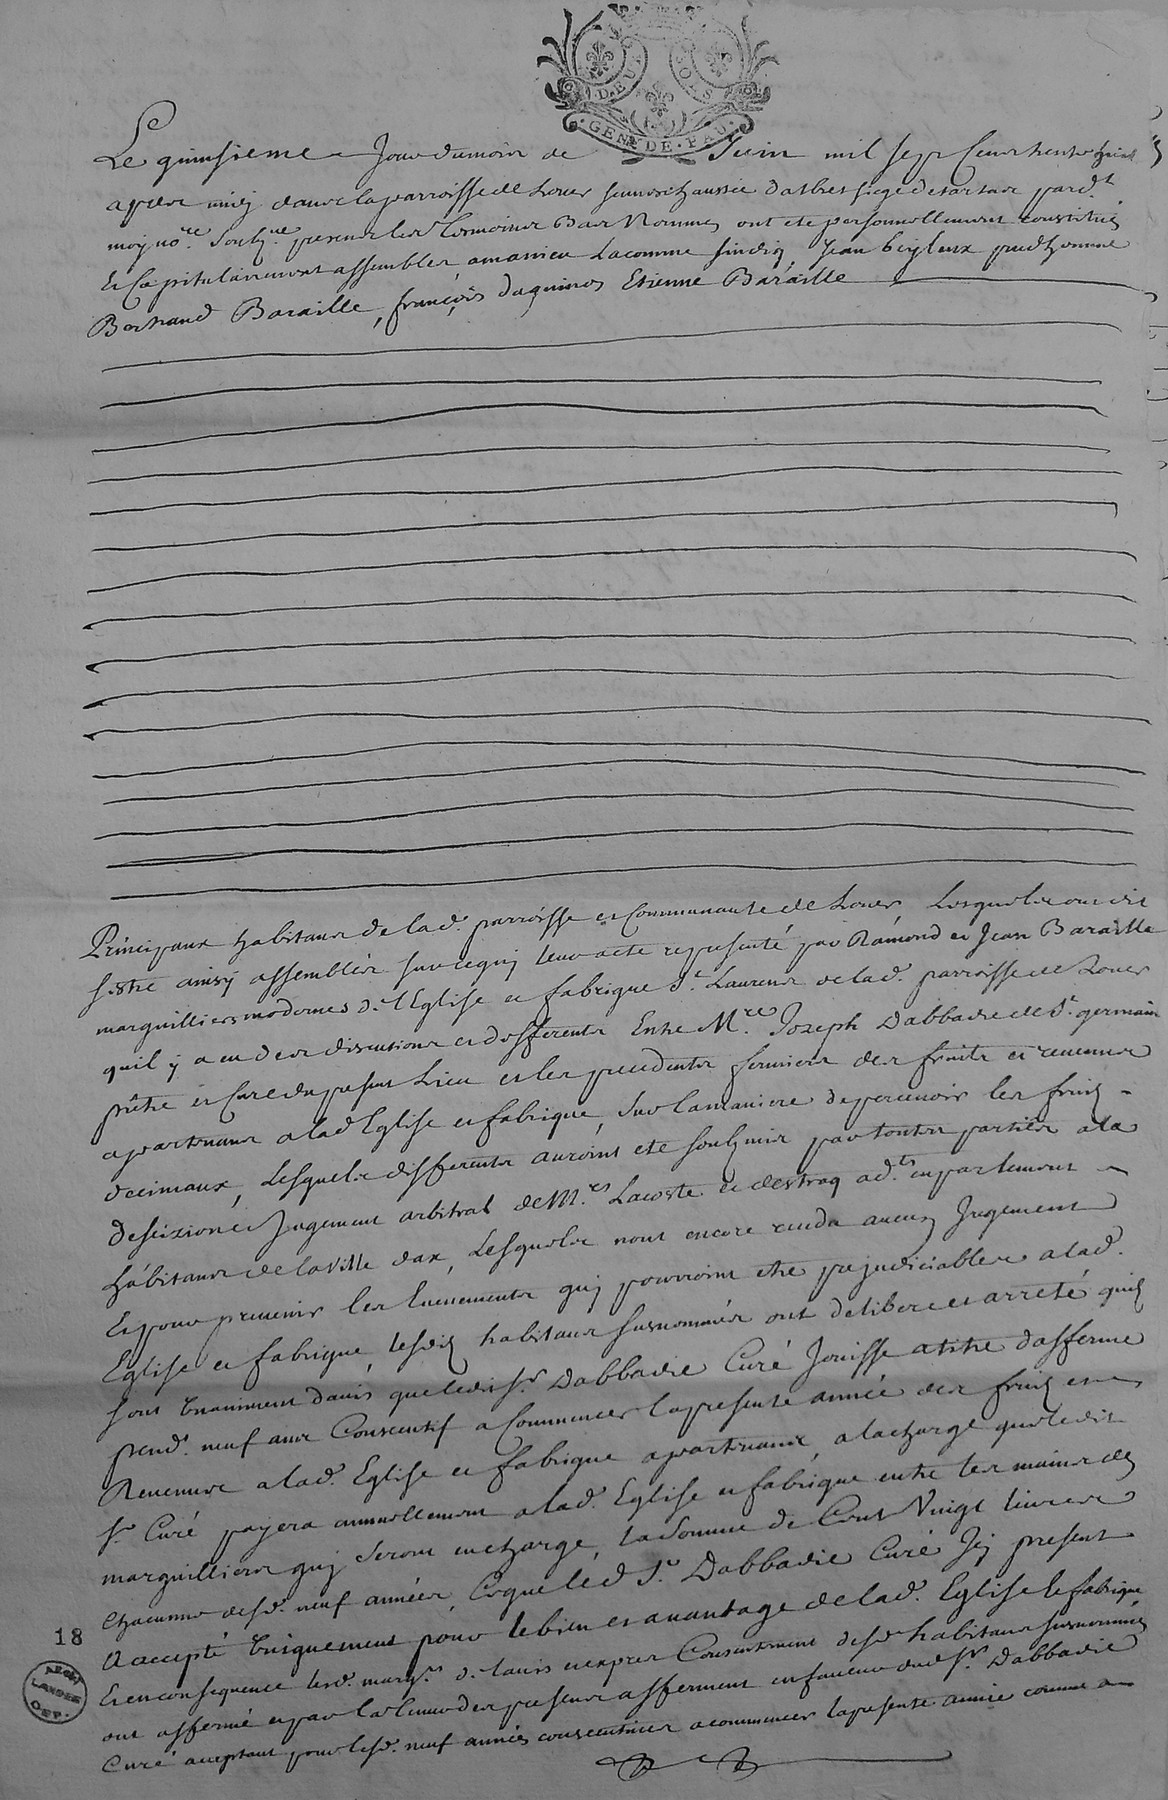 DEUX SOLS
GEN. DE PAU
Le quinsieme Jour du mois de Juin mil sept cens trente
apres midy dans la parroisse de Louer senneschaussée dalbret siege de tartas pard.t
moy no.re soubs.ne presens les tesmoins bas Nommés ont été personnellement constitués
et Capitulairement assembles amanieu Lacomme sindiq, Jean beylenx prudhomme
Bertrand Baraille, françois daguinos Etienne Baraille
Principaux habitans de lad. parroisse et Communauté de Louer Lesquels ont dit
sestre ainsy assemblés sur ce quy leur a ete representé par Ramond et Jean Baraille
marguilliers modernes de l'Eglise et fabrique St. Laurens de lad. parroisse de Louer
quil y a eu des discutions et differents Entre M.re Joseph Dabbadie de St. germain
prêtre et Curé du present Lieu et les precedents fermiers des fruits et revenus
apartenans a lad Eglise et fabrique, sur la maniere de percevoir les fruis
decimaux, Lesquels differents auroint eté soubmis par toutes parties a la
descizion et Jugement arbitral de M.rs Lacoste et destraq ad.ts en parlement
habitans de la ville dax, Lesquels nont encore rendu aucun Jugement
Et pour prevenir les Evenements quy pourroint etre prejudiciables a lad.
Eglise et fabrique, lesdis habitans susnommés ont deliberé et arreté quils
sont Unanimement davis que ledit Sr. Dabbadie Curé Jouisse a titre dafferme
pend. neuf ans Consecutif a Commencer la presente année des fruis et
Revenus a lad. Eglise et fabrique apartenans, a la charge que ledit
Sr. Curé payera annuellement a lad. Eglise et fabrique entre les mains des
marguilliers quy seront en charge, la somme de Cent Vingt livres
chacunne desd. neuf années, Ce que led Sr. Dabbadie Curé Icy present
a accepté Uniquement pour le bien et avantage de lad. Eglise et fabrique
Et en consequence lesd. marg.rs de lavis et exprez Consentement desd habitans susnommés
ont affermé et par la teneur des presens afferment en faveur dud Sr. Dabbadie
Curé acceptant pour lesd. neuf années consecutives a commencer la presente année comme
18
ARCH.
LANDES
DEP.